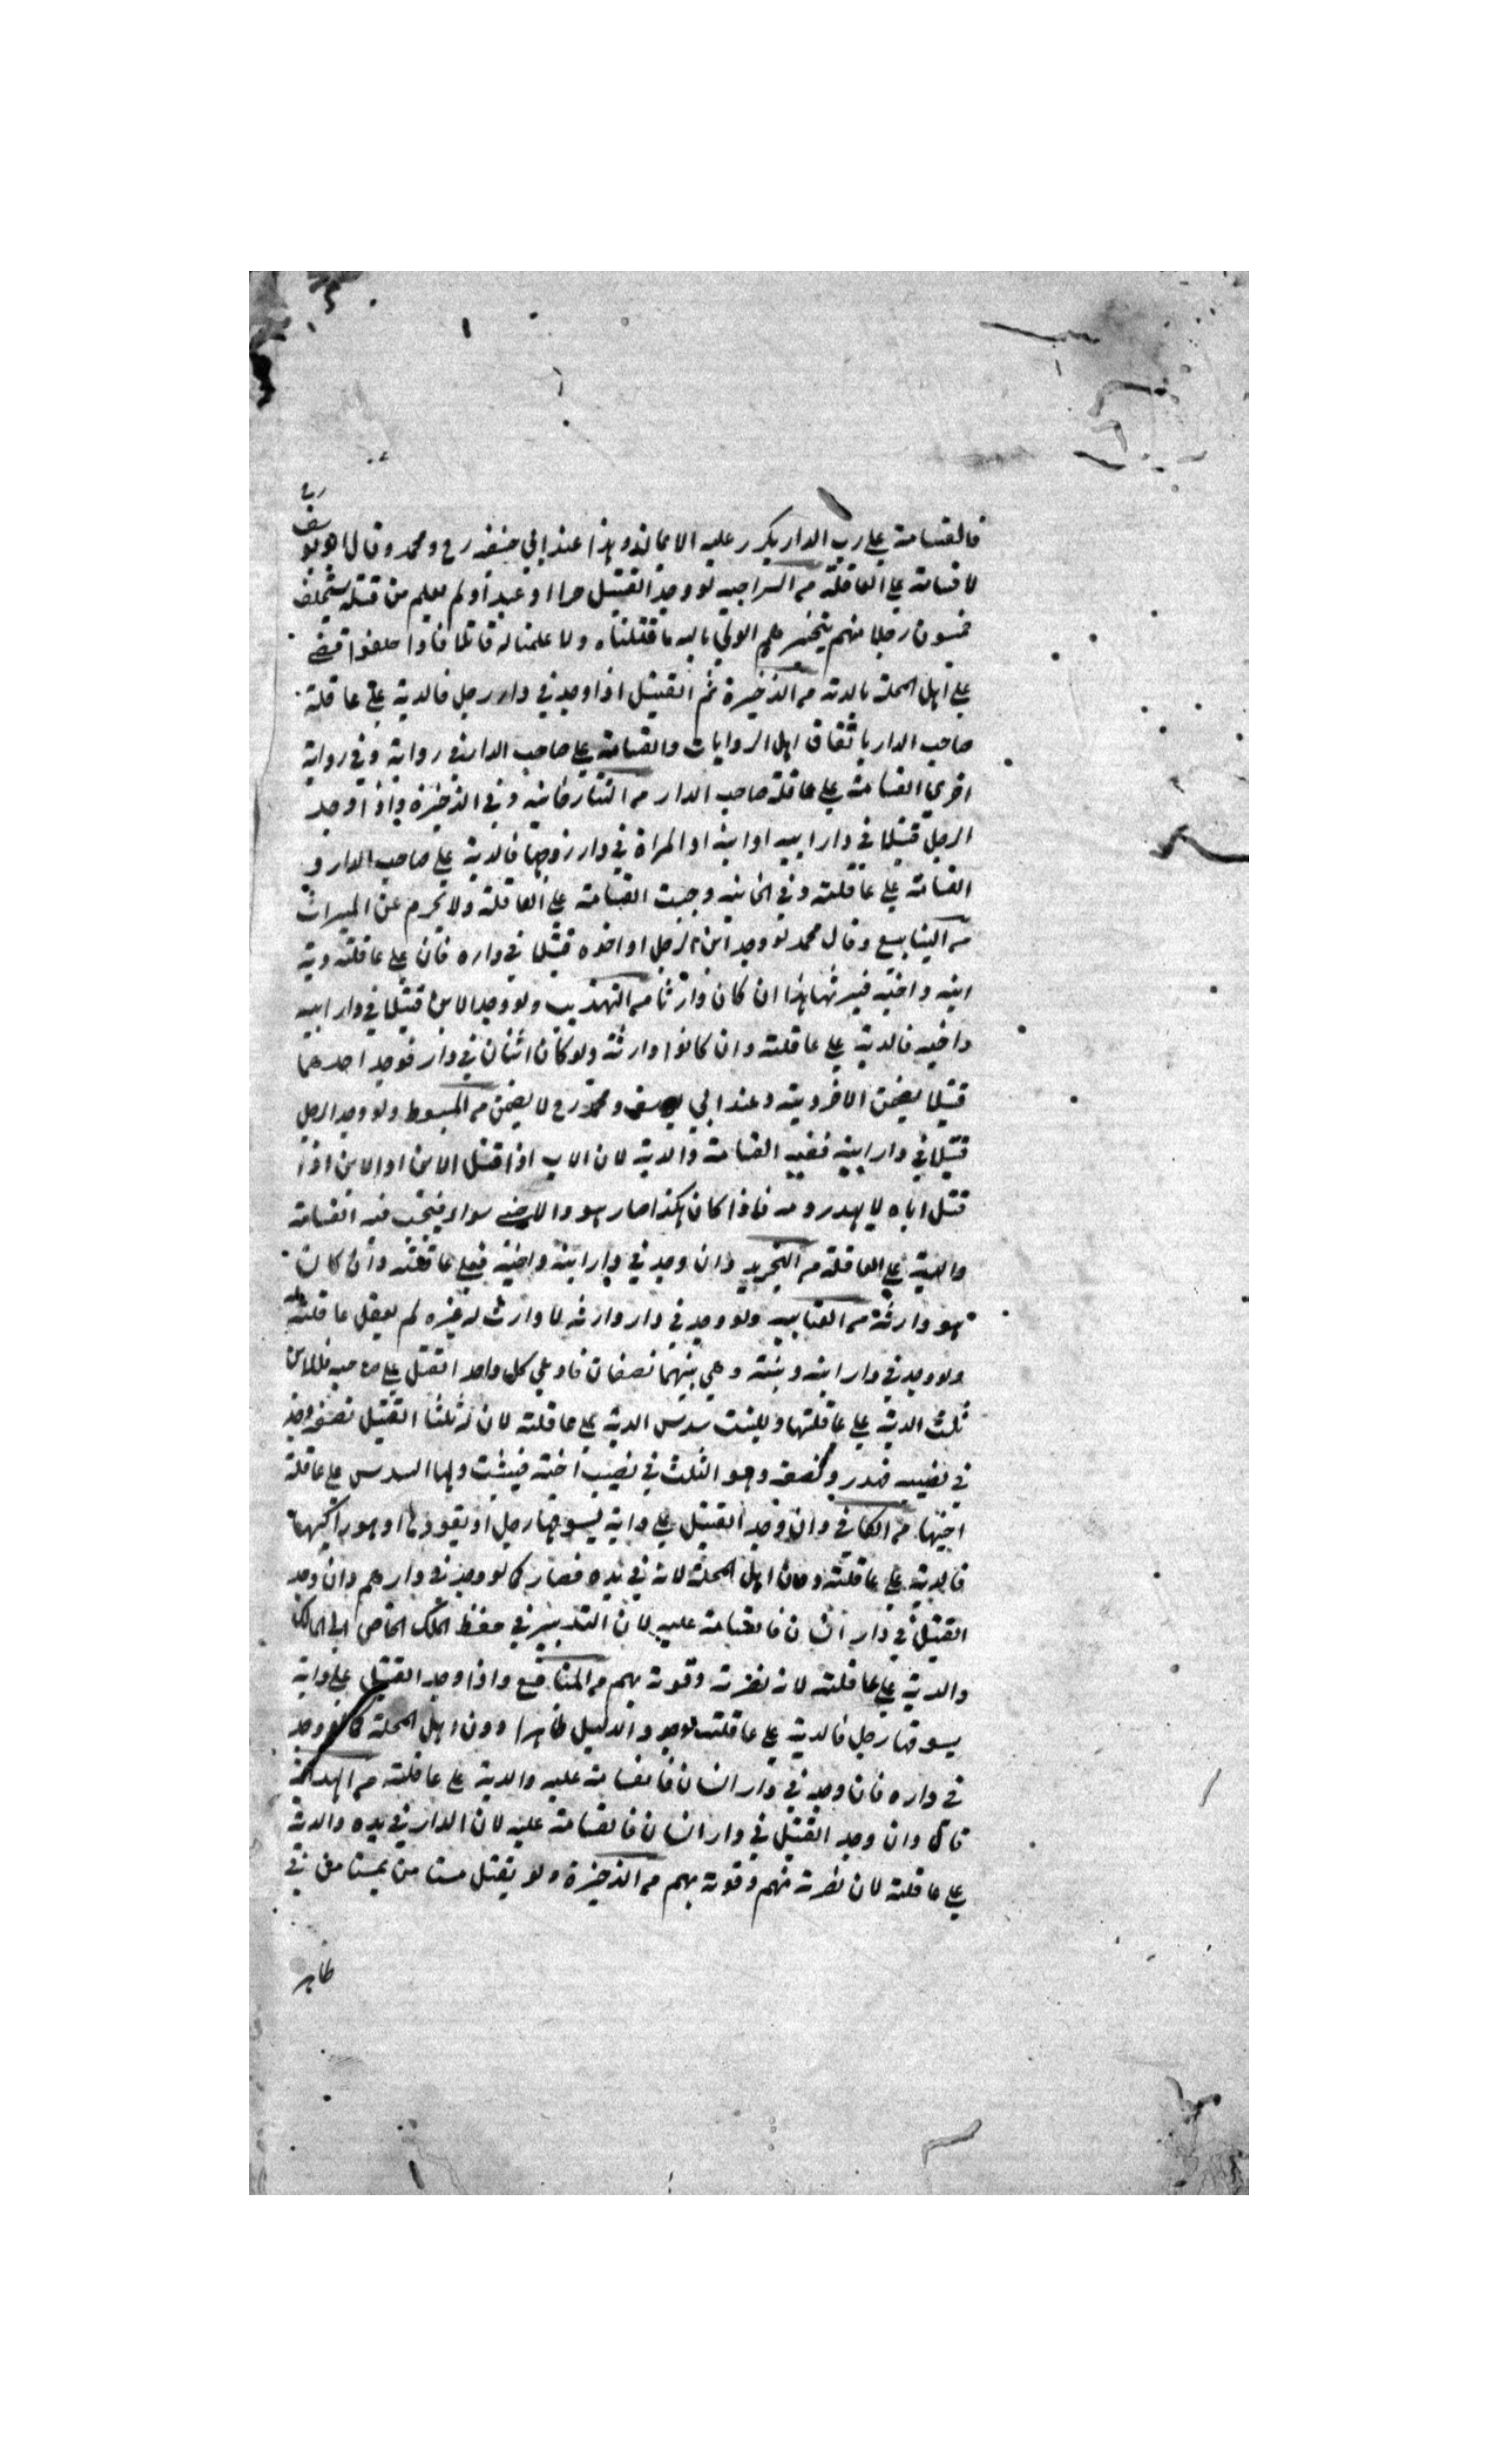 فالقسامة علي رب الدار يكرر عليه الايمان وهذا عند ابي حنيفه رح ومحمد وقال ابو يوسف رح
لا قسامة علي العاقلة من السراجيه لو وجد القتيل حرا او عبدا ولم يعلم من قتله يستحلف
خمسون رجلا منهم يتخيرهم الولي بالله ما قتلناه ولا علمنا له قاتلا فاذا حلفوا قضي
علي اهل المحلة بالدية من الذخيرة ثم القتيل اذا وجد في دار رجل فالدية علي عاقلة
صاحب الدار باتفاق اهل الروايات والقسامة علي صاحب الدار في رواية وفي رواية
اخري القسامة علي عاقلة صاحب الدار من التتارخانيه وفي الذخيرة واذا وجد
الرجل قتيلا في دار ابيه او ابنه او المراة في دار زوجها فالدية علي صاحب الدار و
القسامة علي عاقلته وفي الخانيه وجبت القسامة علي العاقلة ولا يحرم عن الميراث
من الينابيع وقال محمد لو وجد ابن الرجل او اخوه قتيلا في داره فان علي عاقلته دية
ابنه واخيه فيرثها هذا ان كان وارثا من التهذيب ولو وجد الابن قتيلا في دار ابيه
واخيه فالدية علي عاقلته وان كانوا وارثة ولو كان اثنان في دار فوجد احدهما
قتيلا يضمن الاخر ديته وعند ابي يوسف ومحمد رح لا يضمن من المبسوط ولو وجد الرجل
قتيلا في دار ابنه ففيه القسامة والدية لان الاب اذا قتل الابن او الابن اذا
قتل اباه لا يهدر دمه فاذا كان هكذا صار هو والاجنبي سواء فيجب فيه القسامة
والدية علي العاقلة من التجريد وان وجد في دار ابنه واخيه فعلي عاقلته وان كان
هو وارثة من العتابيه ولو وجد في دار وارثه لا وارث له غيره لم يعقل عاقلته
ولو وجد في دار ابنه وبنته وهي بينهما نصفان فادعي كل واحد القتل علي صاحبه فللابن
ثلث الدية علي عاقلتها وللبنت سدس الدية علي عاقلته لان له ثلثا القتيل نصفه وجد
في نصيبه فهدر ونصفه وهو الثلث في نصيب اخته فيثبت ولها السدس علي عاقلة
اخيها من الكافي وان وجد القتيل علي دابة يسوقها رجل او يقودها او هو راكبها
فالدية علي عاقلته دون اهل المحلة لانه في يده فصار كما لو وجد في دارهم وان وجد
القتيل في دار انسان فالقسامة عليه لان التدبير في حفظ الملك الخاص الي المالك
والدية علي عاقلته لان نصرته وقوته بهم من المنافع واذا وجد القتيل علي دابة
يسوقها رجل فالدية علي عاقلته لوجود الدليل ظاهرا دون اهل المحلة كما لو وجد
في داره فان وجد في دار انسان فالقسامة عليه والدية علي عاقلته من الهداية
قال وان وجد القتيل في دار انسان فالقسامة عليه لان الدار في يده والدية
علي عاقلته لان نصرته منهم وقوته بهم من الذخيرة ولو يقتل مستامن بمستامن في
ظاهر